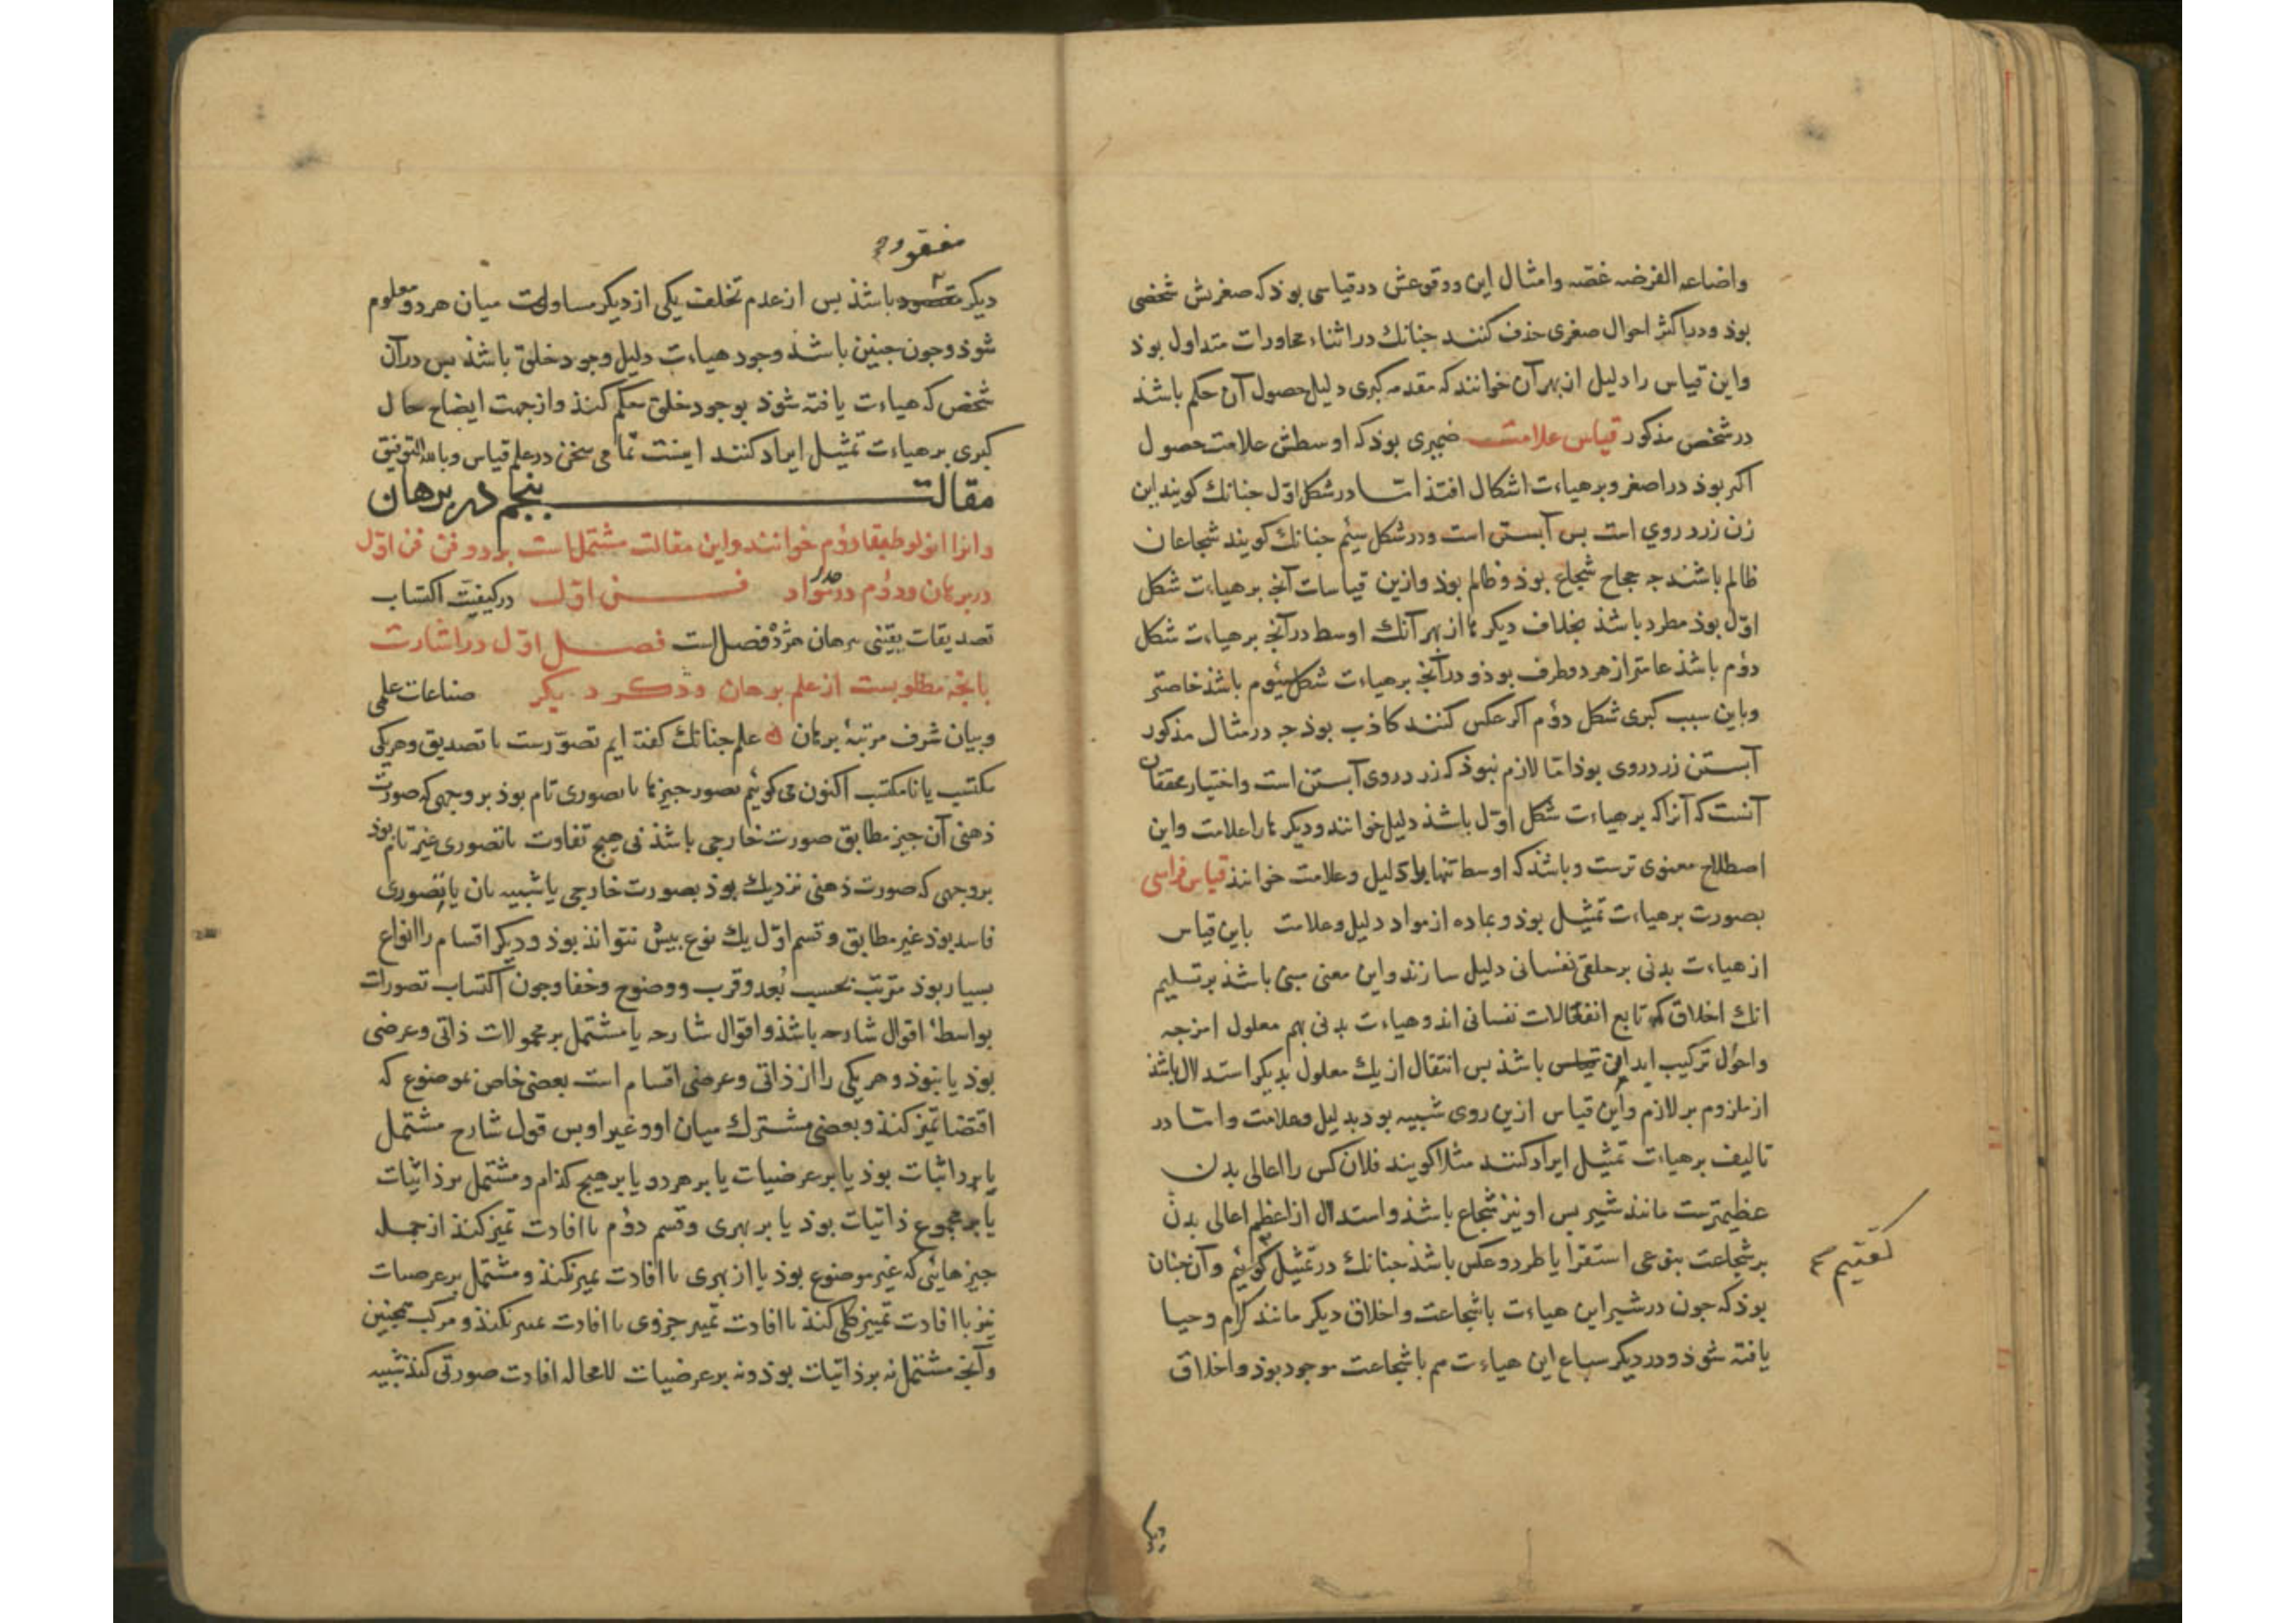 واضاعه الفرضه غصّه وامثال این ووقوعش در قیاسی بوذ که صغریش شخصی
بوذ ودر اکثر احوال صغری حذف کنند جنانك در اثناء محاورات متداول بوذ
واین قیاس را دلیل از بهر آن خوانند که مقدمه کبری دلیل حصول آن حکم باشذ
در شخص مذکور قیاس علامت ضمیری بوذ که اوسطش علامت حصول
اکبر بوذ در اصغر وبر هیاءت اشکال افتذ امّا در شکل اوّل جنانك کویند این
زن زرد روی است بس آبستن است ودر شکل سیُم جنانك کویند شجاعان
ظالم باشند جه حجاج شجاع بوذ وظالم بوذ وازین قیاسات آنج بر هیاءت شکل
اوّل بوذ مطرد باشذ بخلاف دیکرها از بهر آنك اوسط در آنج بر هیاءت شکل
دوُم باشذ عامتر از هر دو طرف بوذ ودر آنج بر هیاءت شکل سیُوم باشذ خاصتر
وباین سبب کبری شکل دوُم اکر عکس کنند کاذب بوذ جه در مثال مذکور
آبستن زرد روی بوذ امّا لازم نبوذ که زرد روی آبستن است واختیار محققان
آنست که آنرا که بر هیاءت شکل اوّل باشذ دلیل خوانند ودیکرها را علامت واین
اصطلاح معنوی ترست وباشذ که اوسط تنها را دلیل وعلامت خوانند قیاس فراسی
بصورت بر هیاءت تمثیل بوذ وبماده از مواد دلیل وعلامت باین قیاس
از هیاءت بدنی بر خلقی نفسانی دلیل سازند واین معنی مبنی باشذ بر تسلیم
انك اخلاق که تابع انفعالات نفسانی اند وهیاءت بدنی بهم معلول امزجه
واحوال ترکیب ابدان باشذ بس انتقال از یك معلول بدیکر استدلال باشذ
از ملزوم بر لازم واین قیاس ازین روی شبیه بود بدلیل وعلامت وامّا در
تالیف بر هیاءت تمثیل ایراد کنند مثلا کویند فلان کس را اعالی بدن
عظیمترست مانند شیر بس او نیز شجاع باشذ واستدلال از اعظم اعالی بدن
بر شجاعت بنوعی استقرا یا طرد وعکس باشذ جنانك در تمثیل کوئیم وآن جنان
بوذ که جون در شیر این هیاءت با شجاعت واخلاق دیکر مانند کرم وحیا
یافته شوذ ودر دیکر سباع این هیاءت هم با شجاعت موجود بوذ واخلاق
دیکر
مفقود
دیکر مقصود باشذ بس از عدم تخلف یکی از دیکر مساوات میان هر دو معلوم
شوذ وجون جنین باشذ وجود هیاءت دلیل وجود خلق باشذ بس در آن
شخص که هیاءت یافته شوذ بوجود خلق حکم کنذ واز جهت ایضاح حال
کبری بر هیاءت تمثیل ایراد کنند اینست تمامی سخن در علم قیاس وبالله التوفیق
مقالت بنجم در برهان
وانرا انولوطیقا دوُم خوانند واین مقالت مشتمل است بر دو فن فن اوّل
در برهان ودوُم در حدود فن اوّل در کیفیّت اکتساب
تصدیقات یقینی ببرهان هژده فصل است فصل اوّل در اشارت
بآنچه مطلوبست از علم برهان وذکر دیکر صناعات علمی
وبیان شرف مرتبۀ برهان علم جنانك کفته ایم تصوّرست با تصدیق وهر یکی
مکتسب یا نامکتسب اکنون می کوئیم تصور جیزها یا تصوری تام بوذ بر وجهی که صورت
ذهنی آن جیز مطابق صورت خارجی باشذ بی هیج تفاوت یا تصوری غیر تام بوذ
بر وجهی که صورت ذهنی نزدیك بوذ بصورت خارجی یا شبیه بان یا تصوری
فاسد بوذ غیر مطابق وقسم اوّل یك نوع بیش نتواند بوذ ودیکر اقسام را انواع
بسیار بوذ مترتب بحسب بُعد وقرب ووضوح وخفا وجون اکتساب تصورات
بواسطۀ اقوال شارحه باشذ واقوال شارحه یا مشتمل بر محمولات ذاتی وعرضی
بوذ یا نبوذ وهر یکی را از ذاتی وعرضی اقسام است بعضی خاص بموضوع که
اقتضا تمیز کنذ وبعضی مشترك میان او وغیر او بس قول شارح مشتمل
یا بر ذاتیات بوذ یا بر عرضیات یا بر هر دو یا بر هیج کذام ومشتمل بر ذاتیات
یا بر مجموع ذاتیات بوذ یا بر بهری وقسم دوُم با افادت تمیز کنذ از جمله
جیزهائی که غیر موضوع بوذ یا از بهری یا افادت تمیز نکنذ ومشتمل بر عرضیات
نیز با افادت تمییز کلی کنذ یا افادت تمییز جزوی یا افادت تمییز نکنذ ومرکب همجنین
وآنج مشتمل نه بر ذاتیات بوذ ونه بر عرضیات لامحاله افادت صورتی کنذ شبیه